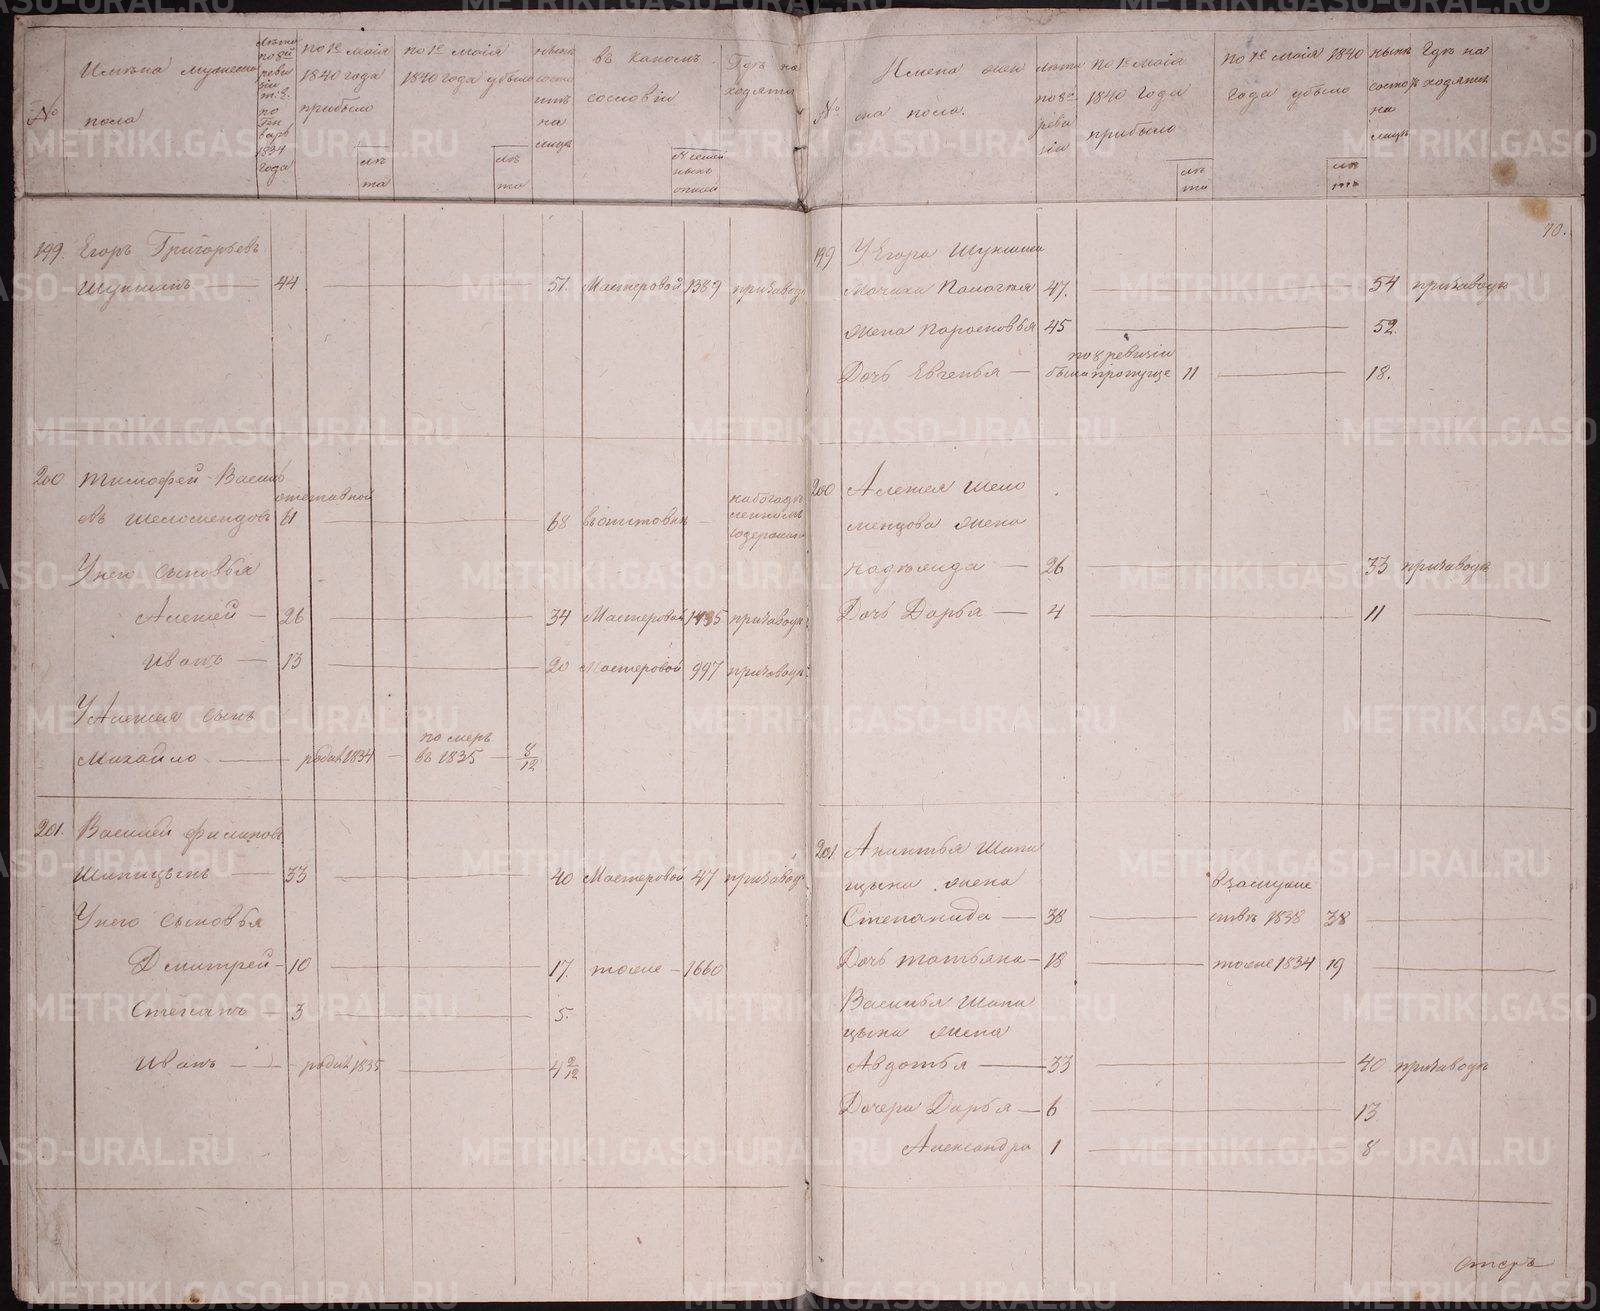 №
Имѣна мужеска
пола
лѣта
по 8й
реви
зіи
по
Ген
варь
1834
года
по 1е маія
1840 года
прибыло
лѣ
та
по 1е маія
1840 года убыло
лѣ
та
нынѣ
состо
итъ
на
лицо
въ какомъ
сословіи
Гдѣ на
ходятся
199. Егоръ Григорьевъ
44 51. Мастеровой 1389 при заводѣ
200 Тимофей Василь
отставной
евъ Шеломендовъ 61 68 въ отставкѣ
на богадѣ
ленномъ
содержании
У него сыновья
Алексей 26 34 Мастеровой при заводѣ
Иванъ 13 20 Мастеровой 997 при заводѣ
У Алексея сынъ
Михайло родил 1834 померъ
въ 1835 8/12
201. Василей Филиповъ
Шипицынъ 33 40 Мастеровой 47 при заводѣ
У него сыновья
Дмитрей 10 17. тоже 1660
Степанъ 3 5.
Иванъ родил 1835 4 2/12
№
Имена жен
ска пола.
лѣта
по 8й
реви
зіи
по 1е маія
1840 года
прибыло
лѣ
та
по 1е маія 1840
года убыло
лѣ
та
нынѣ
состоитъ
на
лицо
Гдѣ на
ходятся
70.
199 У Егора
Мачиха Палагея 47. 54 при заводѣ
жена Парасковья 45 52.
по 8 ревизіи
Дочь Евгенья была пропуще 11 18.
200 Алексея Шело
мендова жена
Надежида 26 33 при заводѣ
Дочь Дарья 4 11
201
цына жена
в замуже
Степанида 38 ствѣ 1838 38
Дочь Татьяна 18 тоже 1834 19
Василья Шипи
цына жена
Авдотья 33 40 при заводѣ
Дочери Дарья 6 13.
Александра 1 8
METRIKI.GASO-URAL.RU